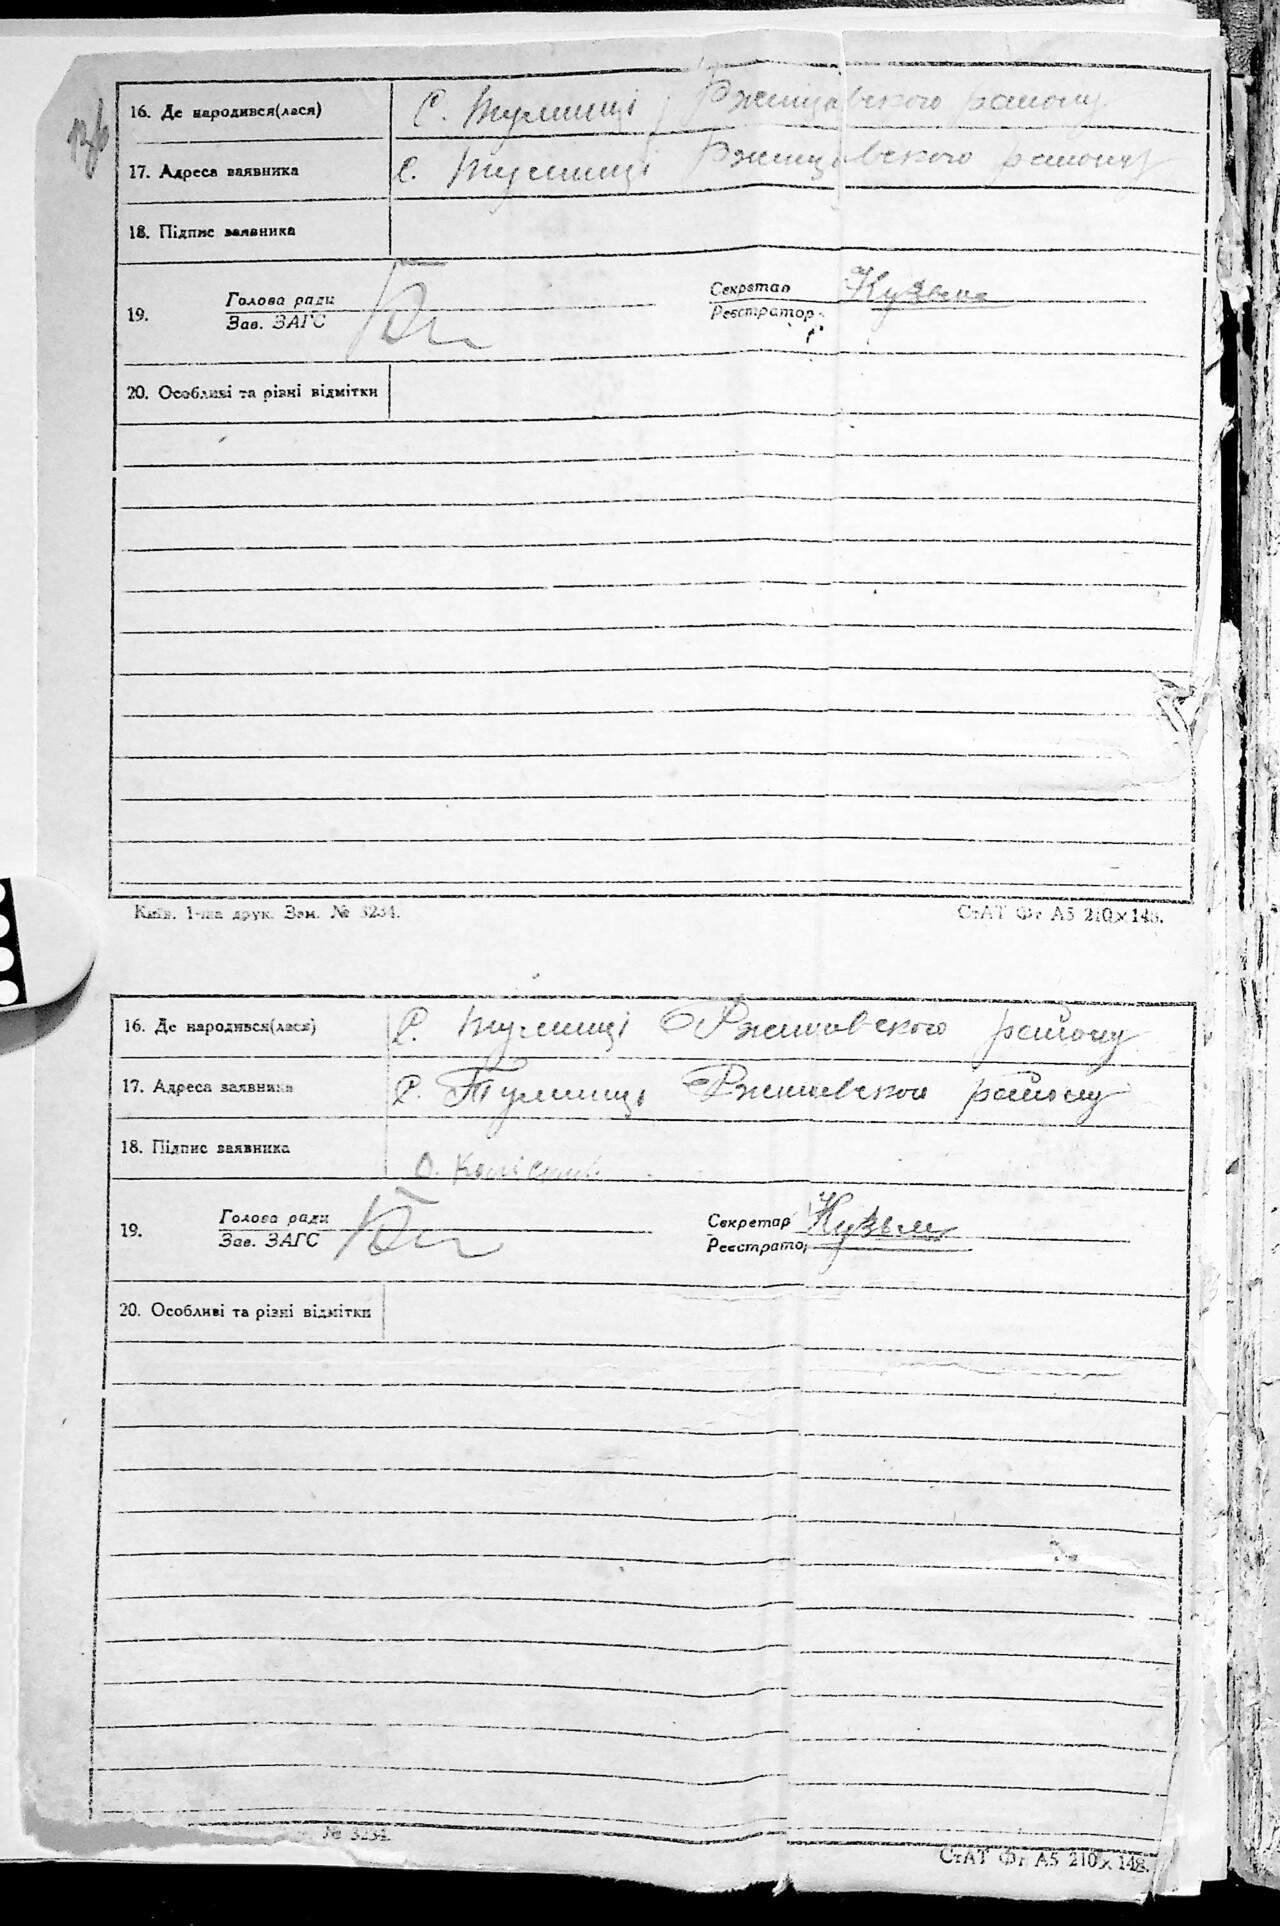 16. Де народився(лася) С. Тулинці Ржищівського району
17. Адреса заявника С. Тулинці Ржищівського району
18. Підпис заявника
19. Голова ради
Зав. ЗАГС
Секретар
Реєстратор
20. Особливі та різні відмітки
Київ. 1-ша друк. Зам. № 3234.
СтАТ Фт А5 210×148.
16. Де народився(лася) С. Тулинці Ржищівського району
17. Адреса заявника С. Тулинці Ржищівського району
18. Підпис заявника
19. Голова ради
Зав. ЗАГС
Секретар
Реєстратор
20. Особливі та різні відмітки
№ 3234.
СтАТ Фт А5 210×148.